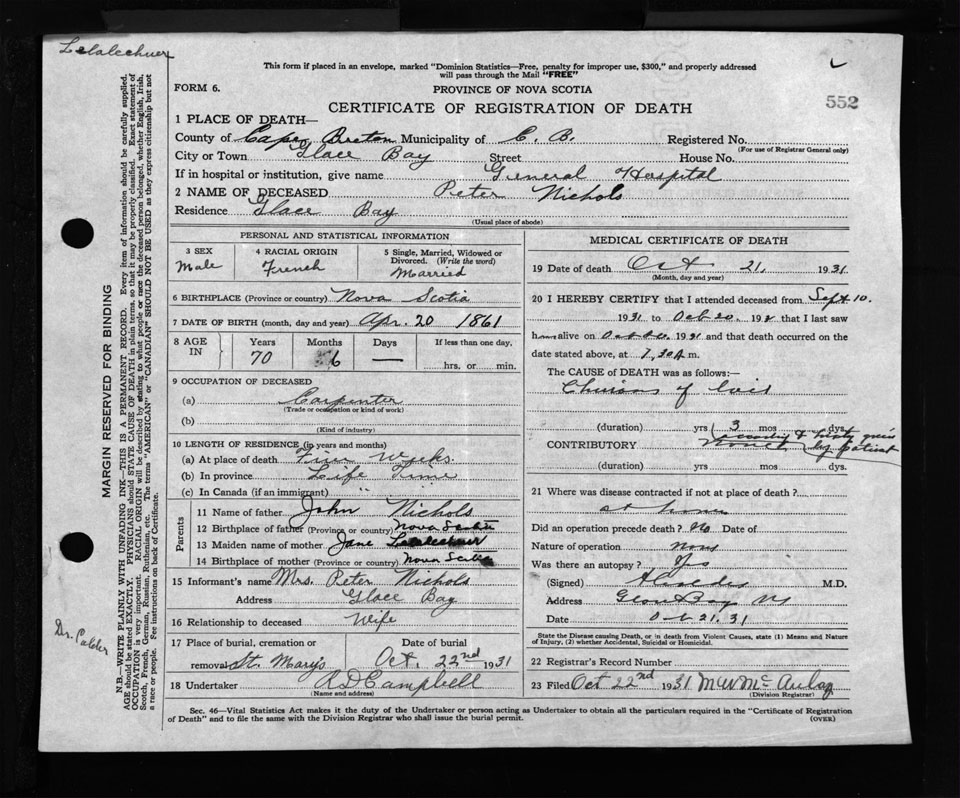 This form if placed in an envelope, marked "Dominion Statistics—Free, penalty for improper use, $300," and properly addressed
will pass through the Mail "FREE"
FORM 6.
PROVINCE OF NOVA SCOTIA
552
CERTIFICATE OF REGISTRATION OF DEATH
1 PLACE OF DEATH—
County of Cape Breton Municipality of C. B. Registered No.
(For use of Registrar General only)
City or Town Glace Bay Street House No.
If in hospital or institution, give name General Hospital
2 NAME OF DECEASED Peter Nichols
Residence Glace Bay
(Usual place of abode)
PERSONAL AND STATISTICAL INFORMATION
3 SEX 4 RACIAL ORIGIN 5 Single, Married, Widowed or
Divorced. (Write the word)
Male French Married
6 BIRTHPLACE (Province or country) Nova Scotia
7 DATE OF BIRTH (month, day and year) Apr. 20 1861
8 AGE IN Years Months Days If less than one day,
70 6 — hrs. or min.
9 OCCUPATION OF DECEASED
(a) Carpenter
(Trade or occupation or kind of work)
(b)
(Kind of industry)
10 LENGTH OF RESIDENCE (in years and months)
(a) At place of death Weeks
(b) In province Life Time
(c) In Canada (if an immigrant) " "
Parents
11 Name of father John Nichols
12 Birthplace of father (Province or country) Nova Scotia
13 Maiden name of mother Jane
14 Birthplace of mother (Province or country) Nova Scotia
15 Informant's name Mrs. Peter Nichols
Address Glace Bay
16 Relationship to deceased Wife
17 Place of burial, cremation or Date of burial
removal St. Marys Oct. 22nd 1931
18 Undertaker A D Campbell
(Name and address)
MEDICAL CERTIFICATE OF DEATH
19 Date of death Oct 21, 1931
(Month, day and year)
20 I HEREBY CERTIFY that I attended deceased from Sept 10.
1931 to Oct 20. 193 that I last saw
him alive on Oct 20. 1931 and that death occurred on the
date stated above, at 7,30A m.
The CAUSE OF DEATH was as follows:—
of
(duration) yrs 3 mos dys.
CONTRIBUTORY by patient
(duration) yrs. mos. dys.
21 Where was disease contracted if not at place of death?
at home
Did an operation precede death? No Date of
Nature of operation None
Was there an autopsy? Yes
(Signed) M.D.
Address Glace Bay NS
Date Oct 21. 31
State the Disease causing Death, or in death from Violent Causes, state (1) Means and Nature
of Injury, (2) whether Accidental, Suicidal or Homicidal.
22 Registrar's Record Number
23 Filed Oct 22nd 1931 M W McAulay
(Division Registrar)
Sec. 46—Vital Statistics Act makes it the duty of the Undertaker or person acting as Undertaker to obtain all the particulars required in the "Certificate of Registration
of Death" and to file the same with the Division Registrar who shall issue the burial permit. (OVER)
MARGIN RESERVED FOR BINDING
N.B.—WRITE PLAINLY WITH UNFADING INK—THIS IS A PERMANENT RECORD. Every item of information should be carefully supplied.
AGE should be stated EXACTLY. PHYSICIANS should STATE CAUSE OF DEATH in plain terms, so that it may be properly classified. Exact statement of
OCCUPATION is very important. RACIAL ORIGIN will be described by stating to what people or race the deceased person belonged, whether English, Irish,
Scotch, French, German, Russian, Ruthenian, etc. The terms "AMERICAN" or "CANADIAN" SHOULD NOT BE USED as they express citizenship but not
a race or people. See instructions on back of Certificate.